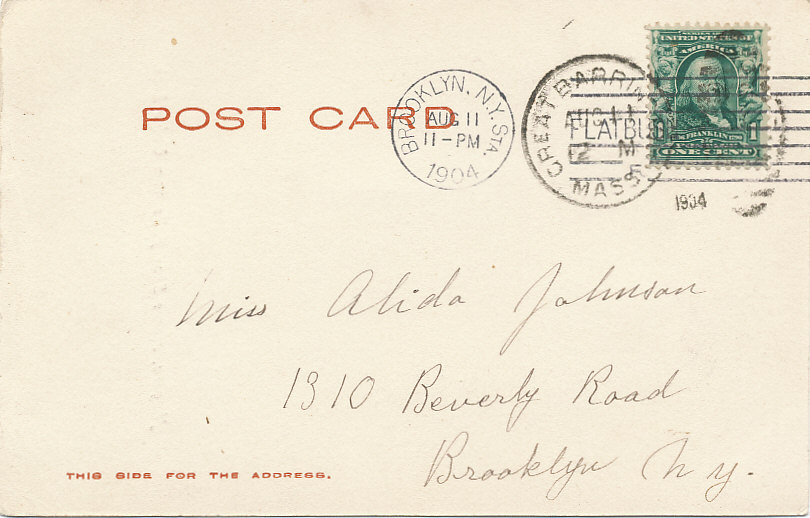 SERIES 1902
UNITED STATES OF
AMERICA
FRANKLIN
ONE CENT
POST CARD
BROOKLYN, N.Y. STA.
AUG 11
11-PM
1904
GREAT BARRIN
AUG 11
12 M
MASS
FLATBU
1904
Miss Alida Johnson
1310 Beverly Road
Brooklyn N y.
THIS SIDE FOR THE ADDRESS.